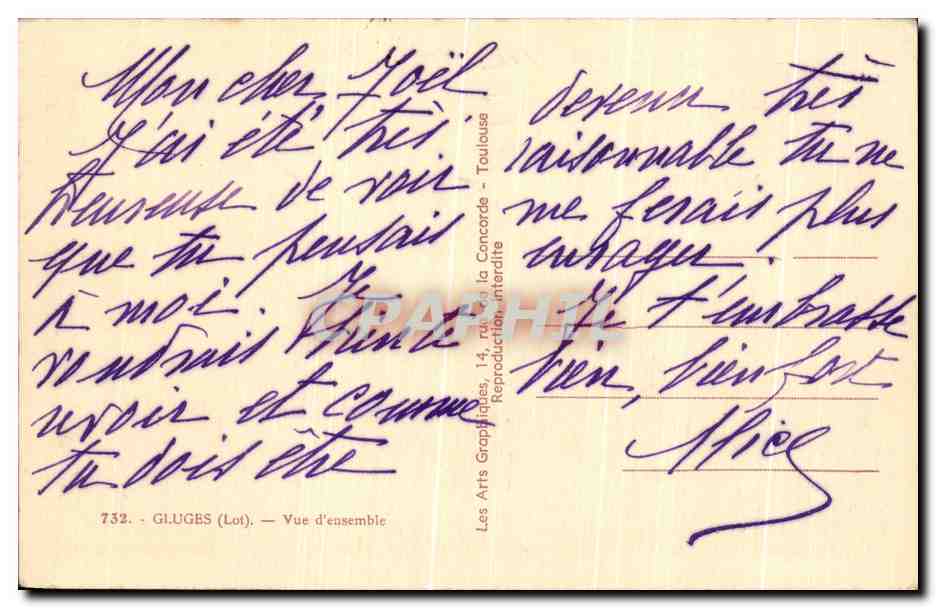 Mon cher Joël
J'ai été très
heureuse de voir
que tu pensais
à moi. Je
voudrais bien te
revoir et comme
tu dois être
732. - GLUGES (Lot). — Vue d'ensemble
Les Arts Graphiques, 14, rue de la Concorde - Toulouse
Reproduction interdite
devenu très
raisonnable tu ne
me ferais plus
enrager.
Je t'embrasse
bien, bien fort
Alice
CPAPHIL